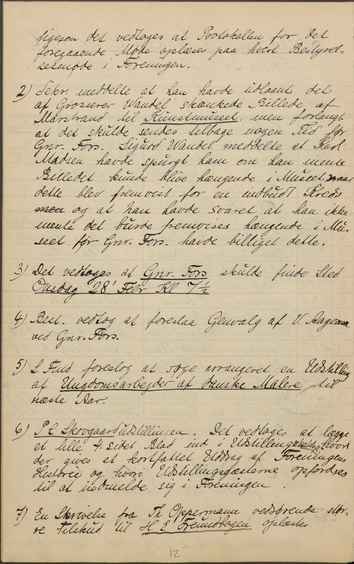 ligesom det vedtoges at Protokollen for det
foregaaende Møde oplæses paa hvert Bestyrel-
sesmøde i Foreningen.
2) Sekr. meddelte at han havde udlaant det
af Grosserer Wandel skænkede Billede af
Marstrand til Kunstmuseet men forlangt
at det skulde sendes tilbage nogen Tid før
Gnr. Fors. Sigurd Wandel meddelte at Karl
Madsen havde spurgt ham om han mente
Billedet kunde blive hængende i Museet,
dette blev fremvist for en indbudt Kreds
og at han havde svaret at han ikke
mente det burde fremvises hængende i Mu-
seet før Gnr. Fors. havde billiget dette.
3) Det vedtoges at Gnr. Fors skulde finde Sted
Onsdag 28' Febr Kl 7½
4) Best. vedtog at foreslaa Genvalg af V. Aagesen
ved Gnr. Fors.
5) L. Find foreslog at søge arrangeret en Udstilling
af Ungdomsarbejder af danske Malere til
næste Aar.
6) P C Skovgaardudstillingen. Det vedtoges at lægge
et lille 4 sidet Blad ind i Udstillingskatalog hvori
der gives et kortfattet Uddrag af Foreningens
Historie og hvori Udstillingsgæsterne opfordres
til at indmelde sig i Foreningen.
7) En Skrivelse fra Th Oppermann vedrørende stør-
re Tilskud til H E Freundbogen oplæstes
12